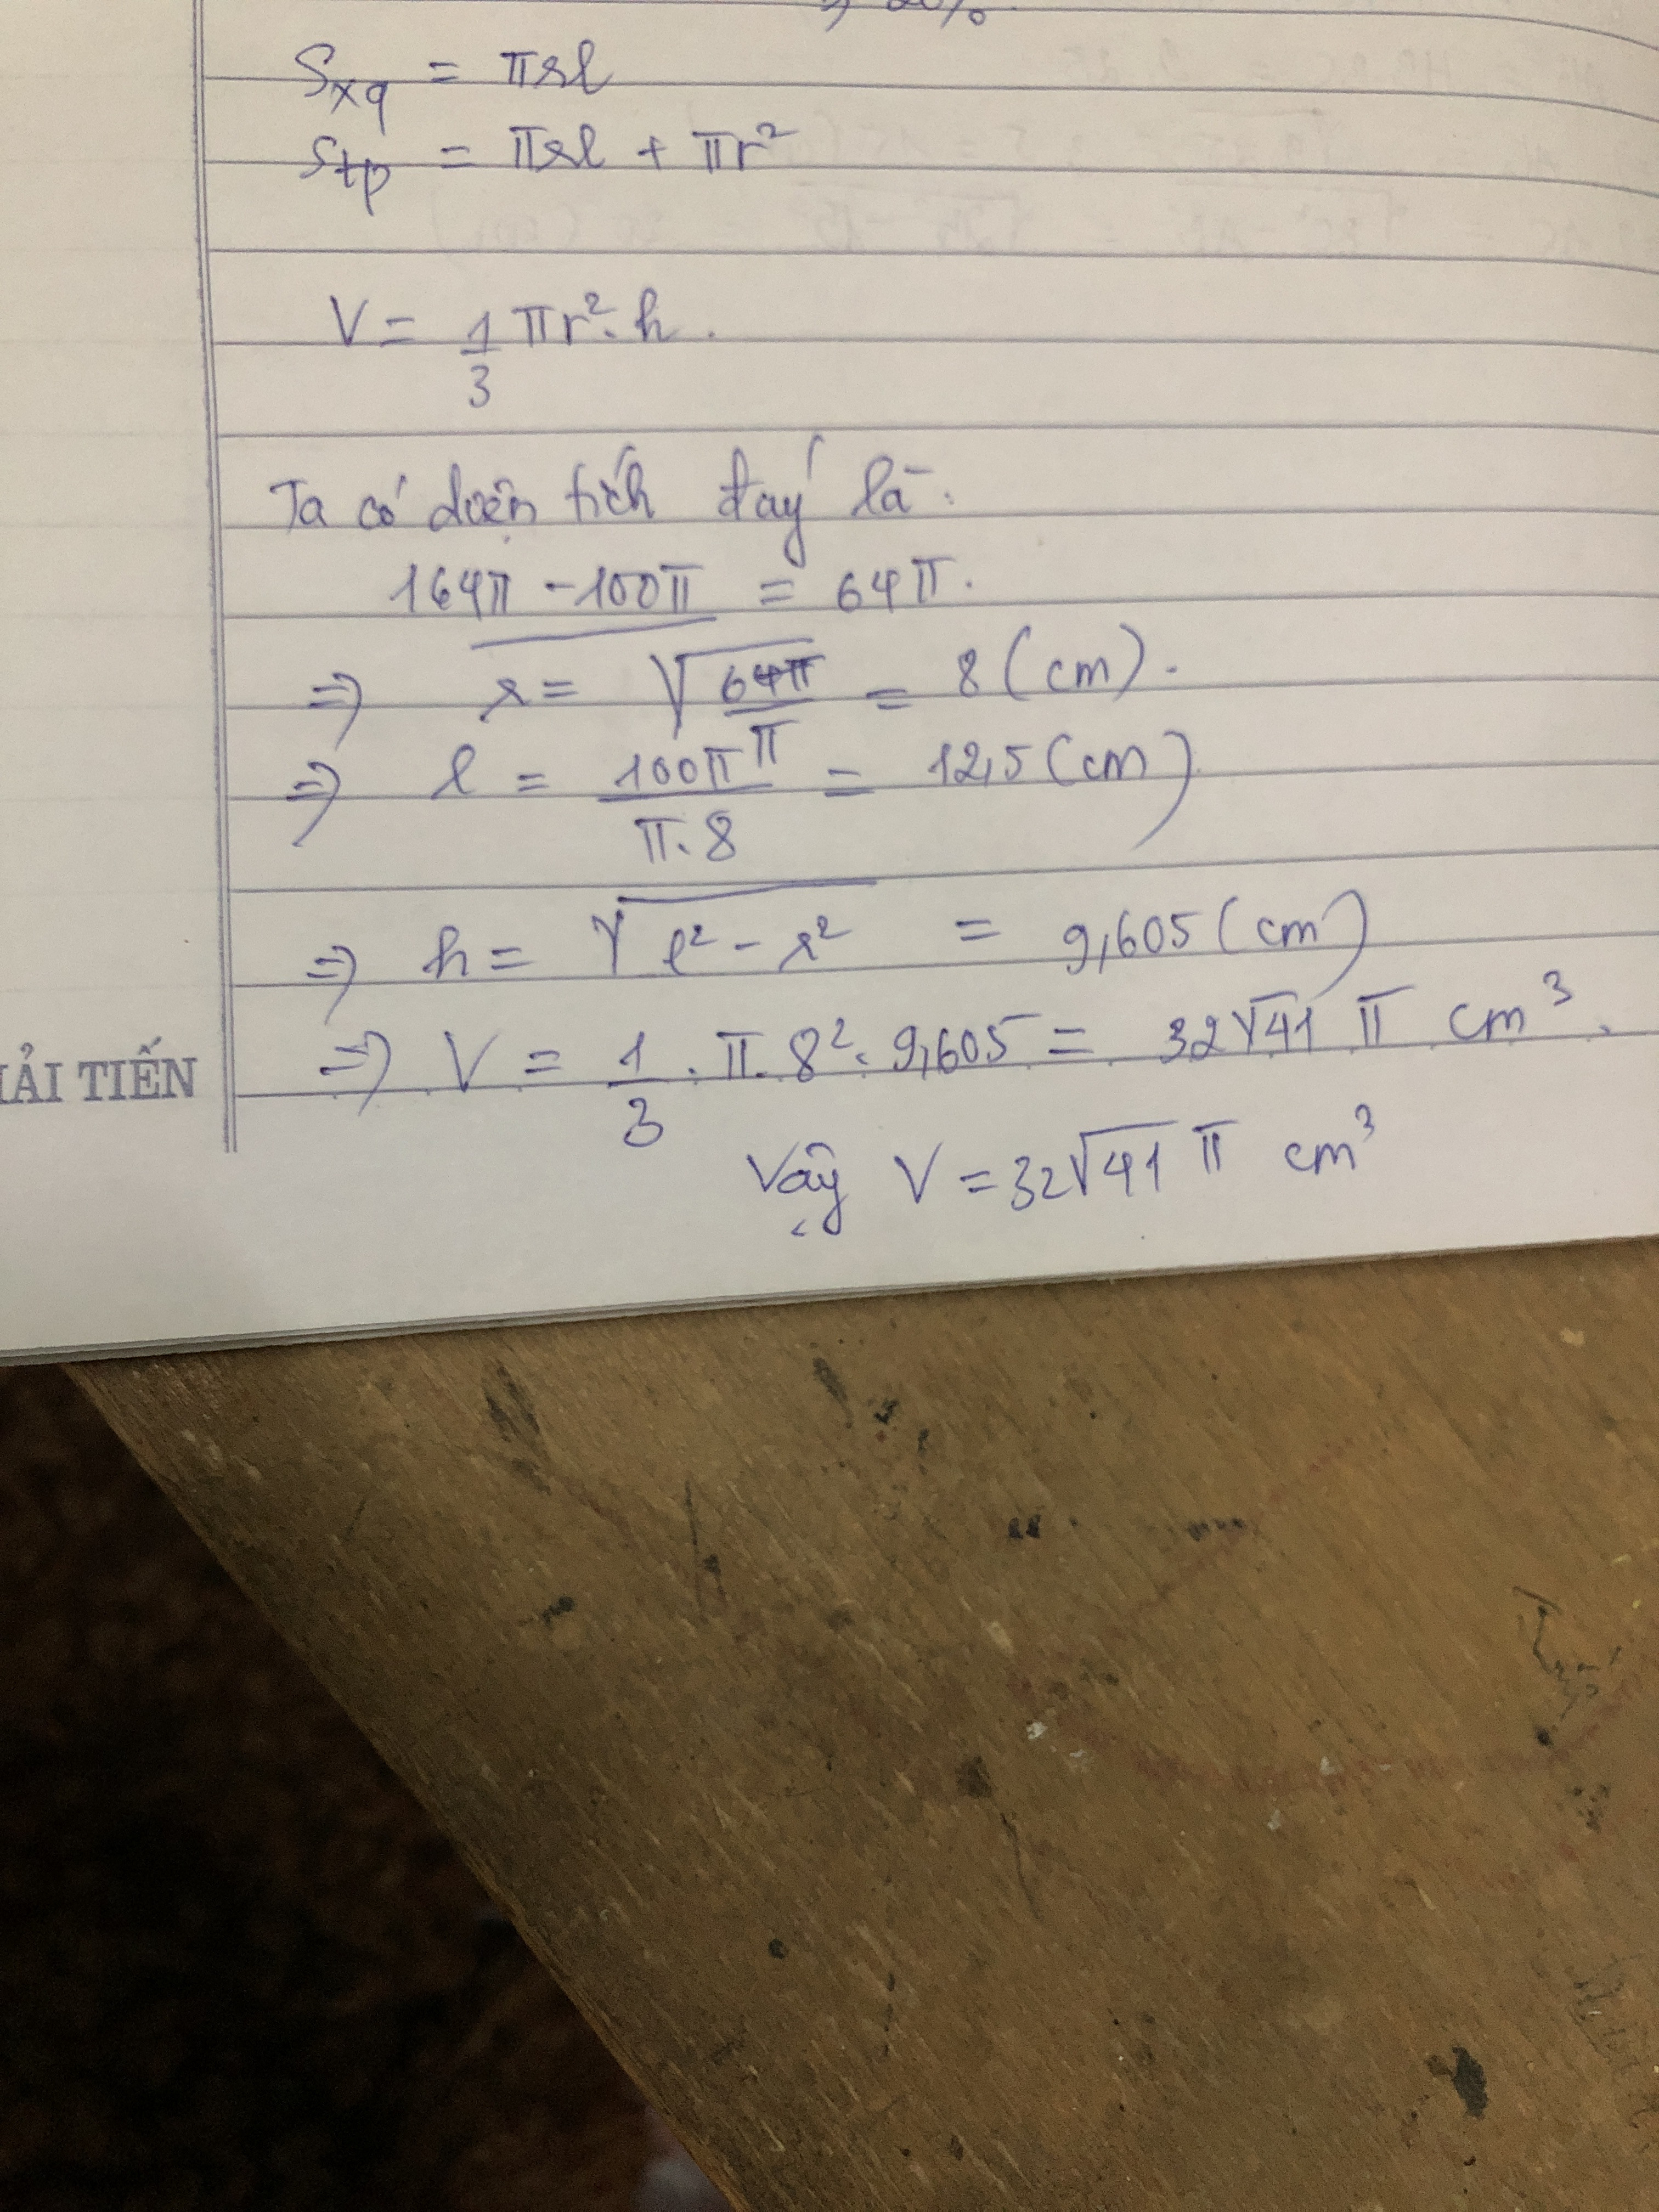 20%
S_xq = πrl
S_tp = πrl + πr²
V = 1/3 πr².h.
Ta có diện tích đáy là:
164π - 100π = 64π.
=> r = √(64π/π) = 8 (cm).
=> l = 100π/π.8 = 12,5 (cm)
=> h = √(l² - r²) = 9,605 (cm)
=> V = 1/3 . π. 8². 9,605 = 32√41 π cm³.
IẢI TIẾN
Vậy V = 32√41 π cm³